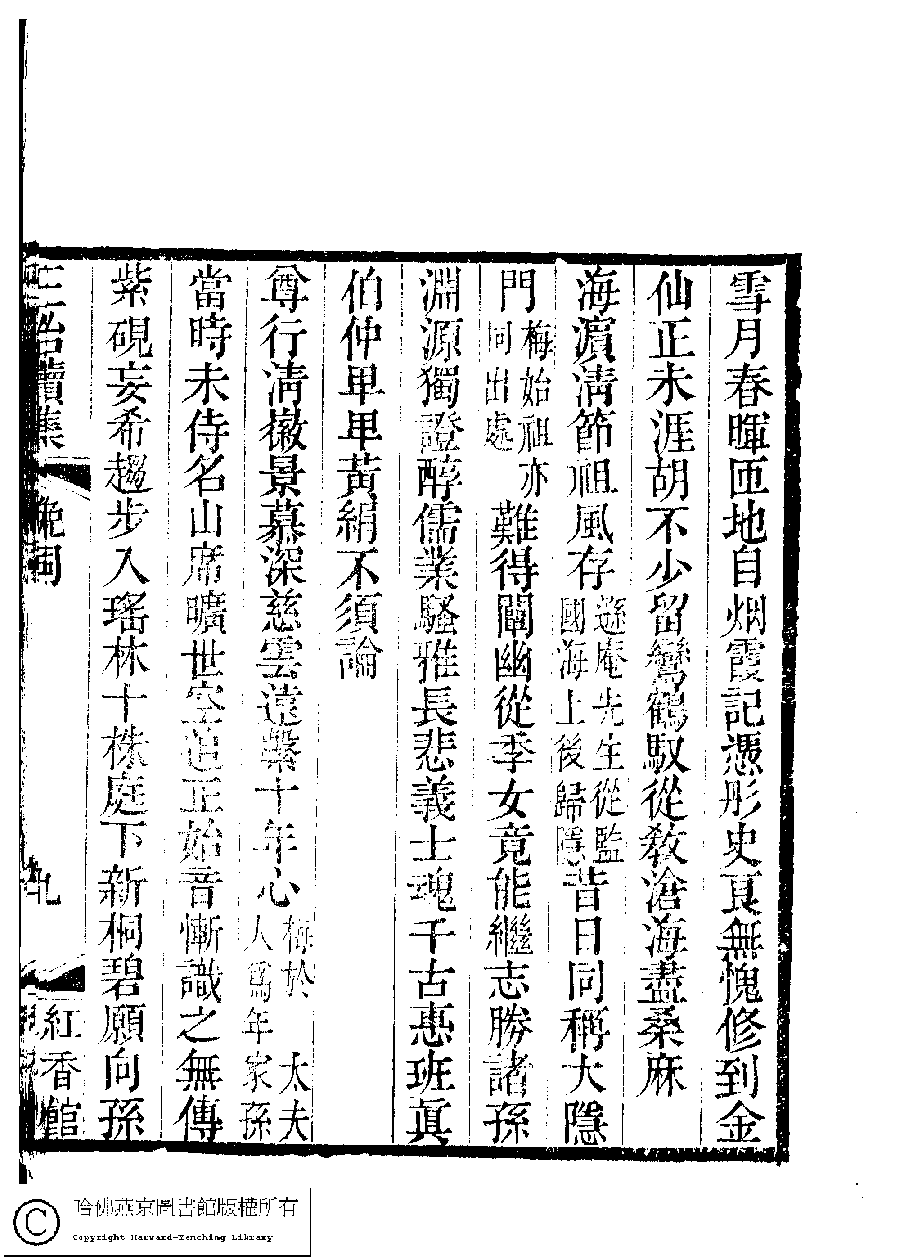 雪月春暉匝地自烟霞記憑彤史頁無愧修到金
仙正未涯胡不少留鸞鶴馭從教滄海盡桑麻
海濵清節祖風存遜庵先生從監國海上後歸隱昔日同稱大隱
門梅始祖亦同出處難得闡幽從季女竟能繼志勝諸孫
淵源獨證醇儒業騷雅長悲義士魂千古惠班眞
伯仲早早黃絹不須論
尊行清徽景慕深慈雲遠繫十年心梅於太夫人爲年家孫
當時未侍名山席曠世空追正始音慚識之無傳
紫硯妄希趨步入瑤林十株庭下新桐碧願向孫
續集
晚
九
紅香館
哈佛燕京圖書館版權所有
Copyright Harvard-Yenching Library